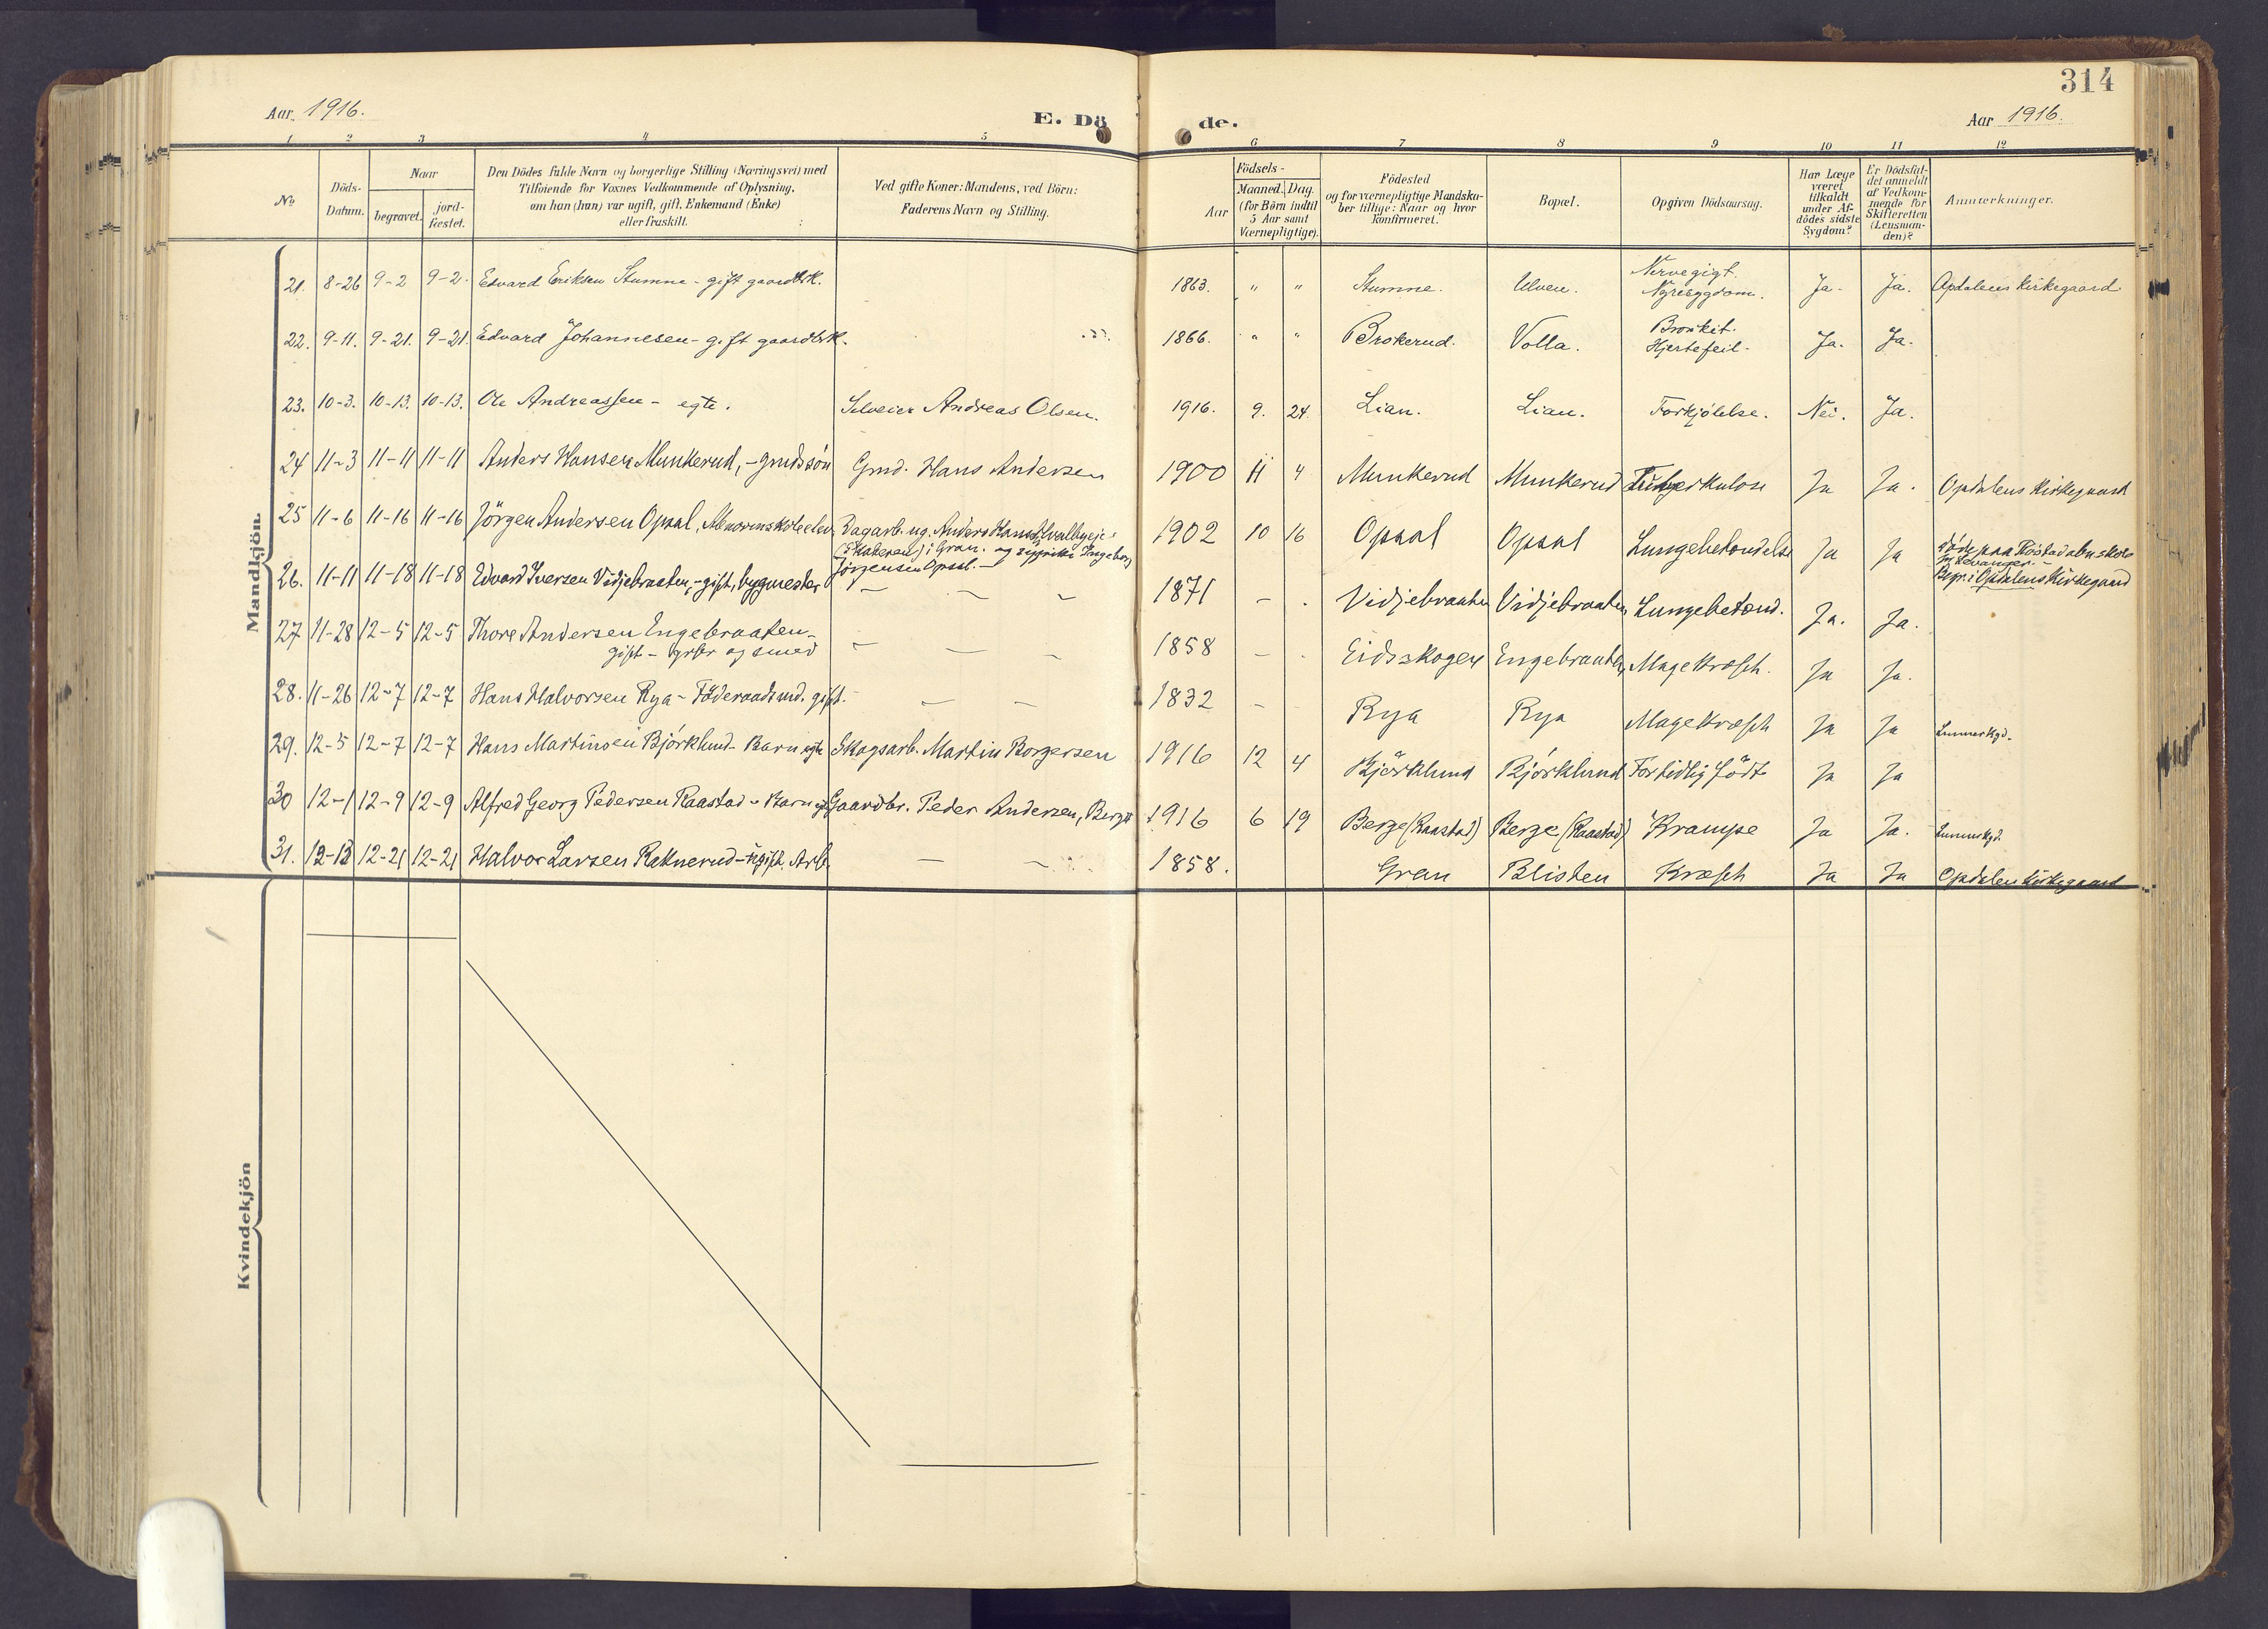 314
Aar 1916.
E. Dö de.
Aar 1916.
1 2 3 4 5 6 7 8 9 10 11 12
No
Döds-
Datum.
Naar
begravet.
jord-
fæstet.
Den Dödes fulde Navn og borgerlige Stilling (Næringsvei) med
Tilföiende for Voxnes Vedkommende af Oplysning,
om han (hun) var ugift, gift, Enkemand (Enke)
eller fraskilt.
Ved gifte Koner: Mandens, ved Börn:
Faderens Navn og Stilling.
Födsels-
Aar
Maaned. Dag.
(for Börn indtil
5 Aar samt
Værnepligtige).
Födested
og for værnepligtige Mandska-
ber tillige: Naar og hvor
konfirmeret.
Bopæl.
Opgiven Dödsaarsag.
Har Læge
været
tilkaldt
under Af-
dödes sidste
Sygdom?
Er Dödsfal-
det anmeldt
af Vedkom-
mende for
Skifteretten
(Lensman-
den)?
Anmærkninger.
Mandkjön.
21. 8-26 9-2 9-2. Edvard Eriksen Stumne - gift gaardbrk. 1863. " " Stumne. Ulven. Nervegigt. Nyresygdom. Ja. Ja. Opdalens Kirkegaard.
22. 9-11. 9-21. 9-21. Edvard Johannesen - gift gaardbrk. 1866. " " Brokerud. Volla. Bronkit. Hjertefeil. Ja. Ja.
23. 10-3. 10-13. 10-13. Ole Andreassen - egte. Selveier Andreas Olsen. 1916. 9. 24. Lian. Lian. Forkjölelse. Nei. Ja.
24 11-3 11-11 11-11 Anders Hansen Munkerud, - grmdssön Grmd. Hans Andersen 1900 11 4 Munkerud Munkerud Tuberkulose Ja Ja. Opdalens Kirkegaard
25 11-6 11-16 11-16 Jörgen Andersen Opsal, Abnormskoleelev Dagarb. ug. Anders Hansen
(Skakeren) i Gran. og Ingeborg
Jörgensen Opsal. 1902 10 16 Opsal Opsal Lungebetændelse Ja Ja döde paa Röstad abn.skole
Levanger. -
Begr. i Opdalens Kirkegaard
26. 11-11 11-18 11-18 Edvard Iversen Vidjebraaten, - gift, bygmester - - - 1871 - . Vidjebraaten Vidjebraaten, Lungebetænd. Ja. Ja.
27 11-28 12-5 12-5 Thore Andersen Engebraaten -
gift - grbr og smed - - - 1858 - . Eidsskogen Engebraaten, Magekræft. Ja Ja.
28. 11-26 12-7 12-7 Hans Halvorsen Rya - Föderaadsmd. gift. - - 1832 - Rya Rya Magekræft Ja Ja Lunnerkgd.
29. 12-5 12-7 12-7 Hans Martinsen Björklund - Barn egte Skogsarb. Martin Borgersen 1916 12 4 Björklund Björklund For tidlig födt Ja Ja
30 12-1 12-9 12-9 Alfred Georg Pedersen Raastad - Barn eg Gaardbr. Peder Andersen, Berge 1916 6 19 Berge (Raastad) Berge (Raastad) Krampe Ja Ja. Lunnerkgd.
31. 12-13 12-21 12-21 Halvor Larsen Raknerud - ugift. Arb. - - 1858. Gran Blisten Kræft Ja Ja Opdalen Kirkegaard
Kvindekjön